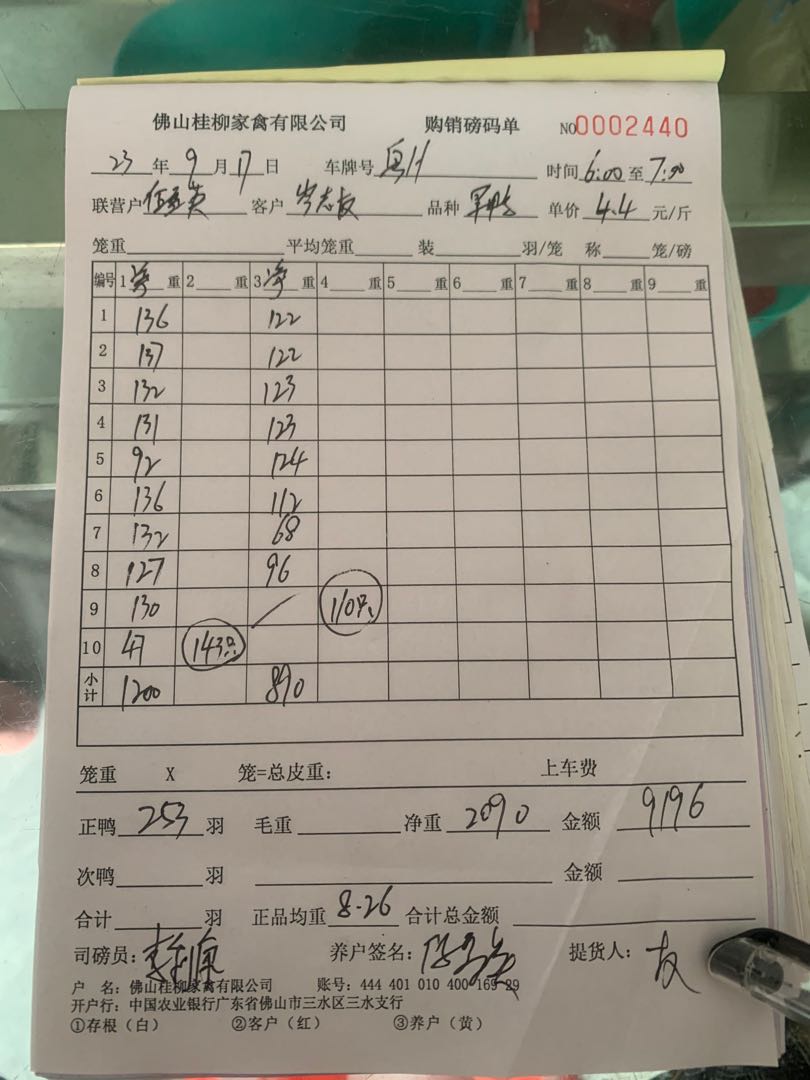 佛山桂柳家禽有限公司 购销磅码单 NO0002440
23 年 9 月 17 日 车牌号 时间 6:00 至 7:00
联营户 客户 岑志友 品种 单价 4.4 元/斤
笼重 平均笼重 装 羽/笼 称 笼/磅
编号 1 净 重 2 重 3 净 重 4 重 5 重 6 重 7 重 8 重 9 重
1 136 122
2 137 122
3 132 123
4 131 123
5 92 124
6 136 112
7 132 68
8 127 96
9 130 110只
10 47 143只
小计 1200 890
笼重 X 笼=总皮重: 上车费
正鸭 253 羽 毛重 净重 2090 金额 9196
次鸭 羽 金额
合计 羽 正品均重 8.26 合计总金额
司磅员: 养户签名: 提货人: 友
户 名: 佛山桂柳家禽有限公司 账号: 444 401 010 400 169 29
开户行: 中国农业银行广东省佛山市三水区三水支行
①存根(白) ②客户(红) ③养户(黄)